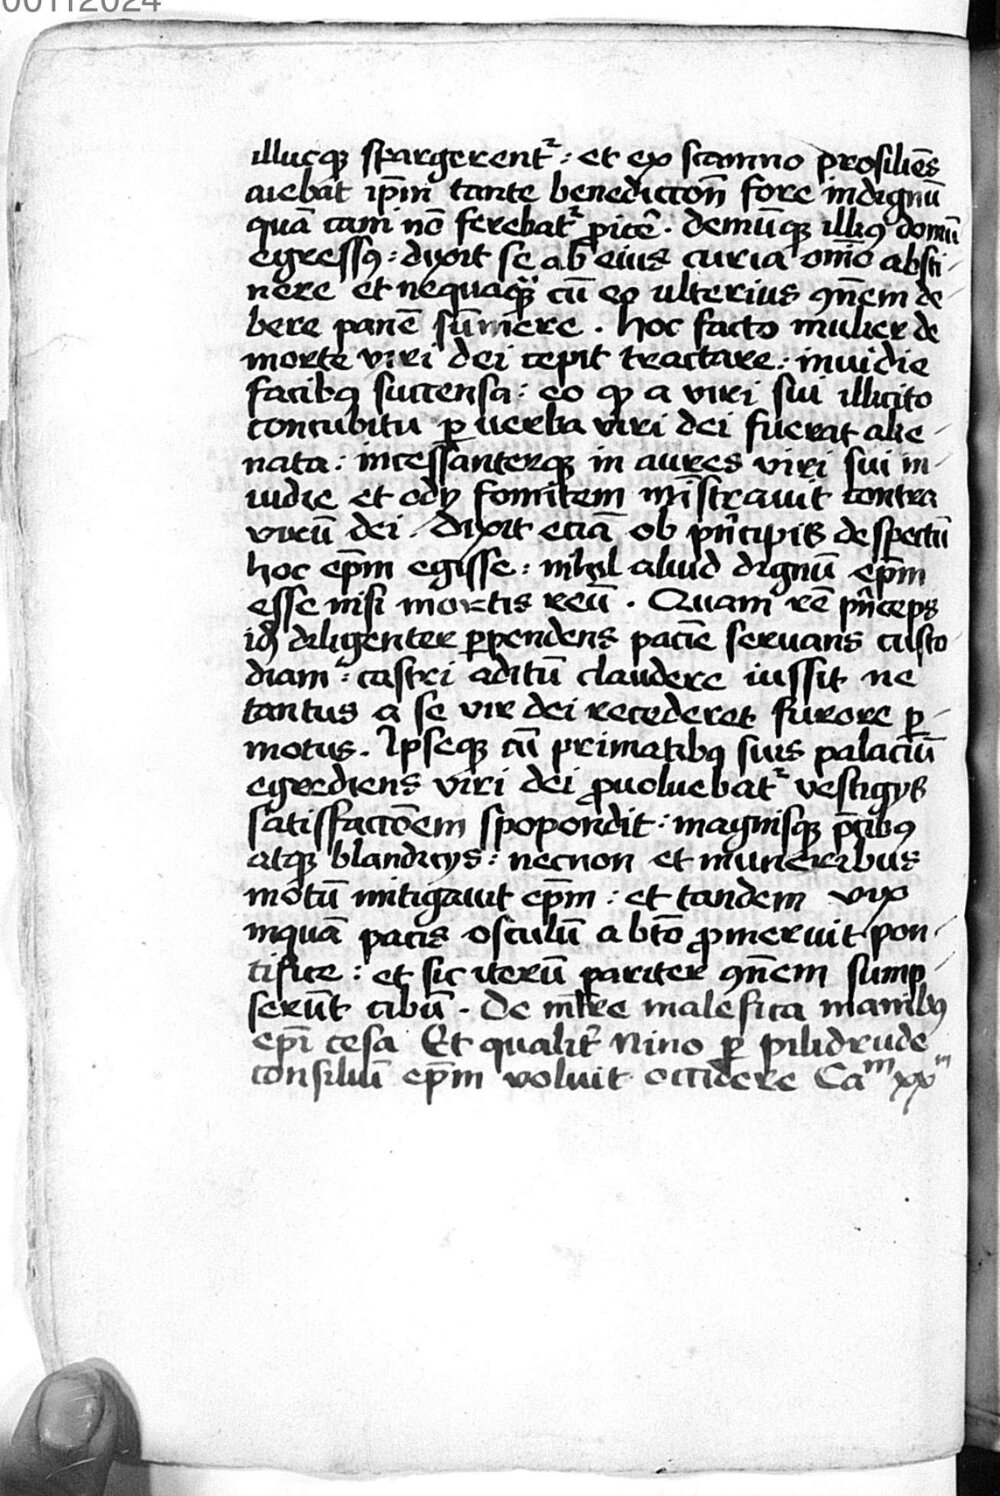 00112024
illucqꝫ spargerentᷣ : et ex scamno prosiliēs
aiebat ip̄m tante benedicc̄oń fore indignū
quā cam nō ferebatᷣ ꝓicē . demūqꝫ illiꝰ domū
egressꝰ : dixit se ab eius curia om̄o absti⸗
nere et nequaqꝫ cū eo ulterius ꝯn̄em de⸗
bere panē sūmere . hoc facto mulier de
morte viri dei cepit tractare : inuidie
facibꝰ succensa : eo qꝫ a viri sui illicito
concubitu ꝑ verba viri dei fuerat alie⸗
nata : incessanterqꝫ in aures viri sui in⸗
uidie et odij fomitem mīstrauit contra
virū dei . dixit eciā ob pn̄cipis despectū
hoc ep̄m egisse : nihil aliud dignū ep̄m
esse nisi mortis reū . Quam rē pn̄ceps
id diligenter ꝑpendens pacīe seruans custo⸗
diam : castri aditū claudere iussit ne
tantus a se vir dei recederet furore ꝑ⸗
motus . Ipseqꝫ cū primatibꝰ suis palaciū
egrediens viri dei ꝓuoluebatᷣ vestigijs
satisfacc̄oēm spopondit : magnisqꝫ p̄cibꝰ
atqꝫ blandicijs : necnon et muneribus
motū mitigauit ep̄m : et tandem vix
inquā pacis osculū a bt̄o ꝓmeruit pon⸗
tifice : et sic iterū pariter ꝯn̄em sump⸗
serūt cibū . De ml̄re malefica manibꝰ
ep̄i cesa Et qualitᷣ Nino ꝑ pilidrude
consiliū ep̄m voluit occidere Cam xxm